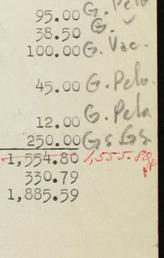 95.00 G. Pelo
38.50 G.
100.00 G. Vac.
45.00 G. Pelo.
12.00 G. Pelo.
250.00 Gs. Gs.
1,554.80 1,555.80
330.79
1,885.59